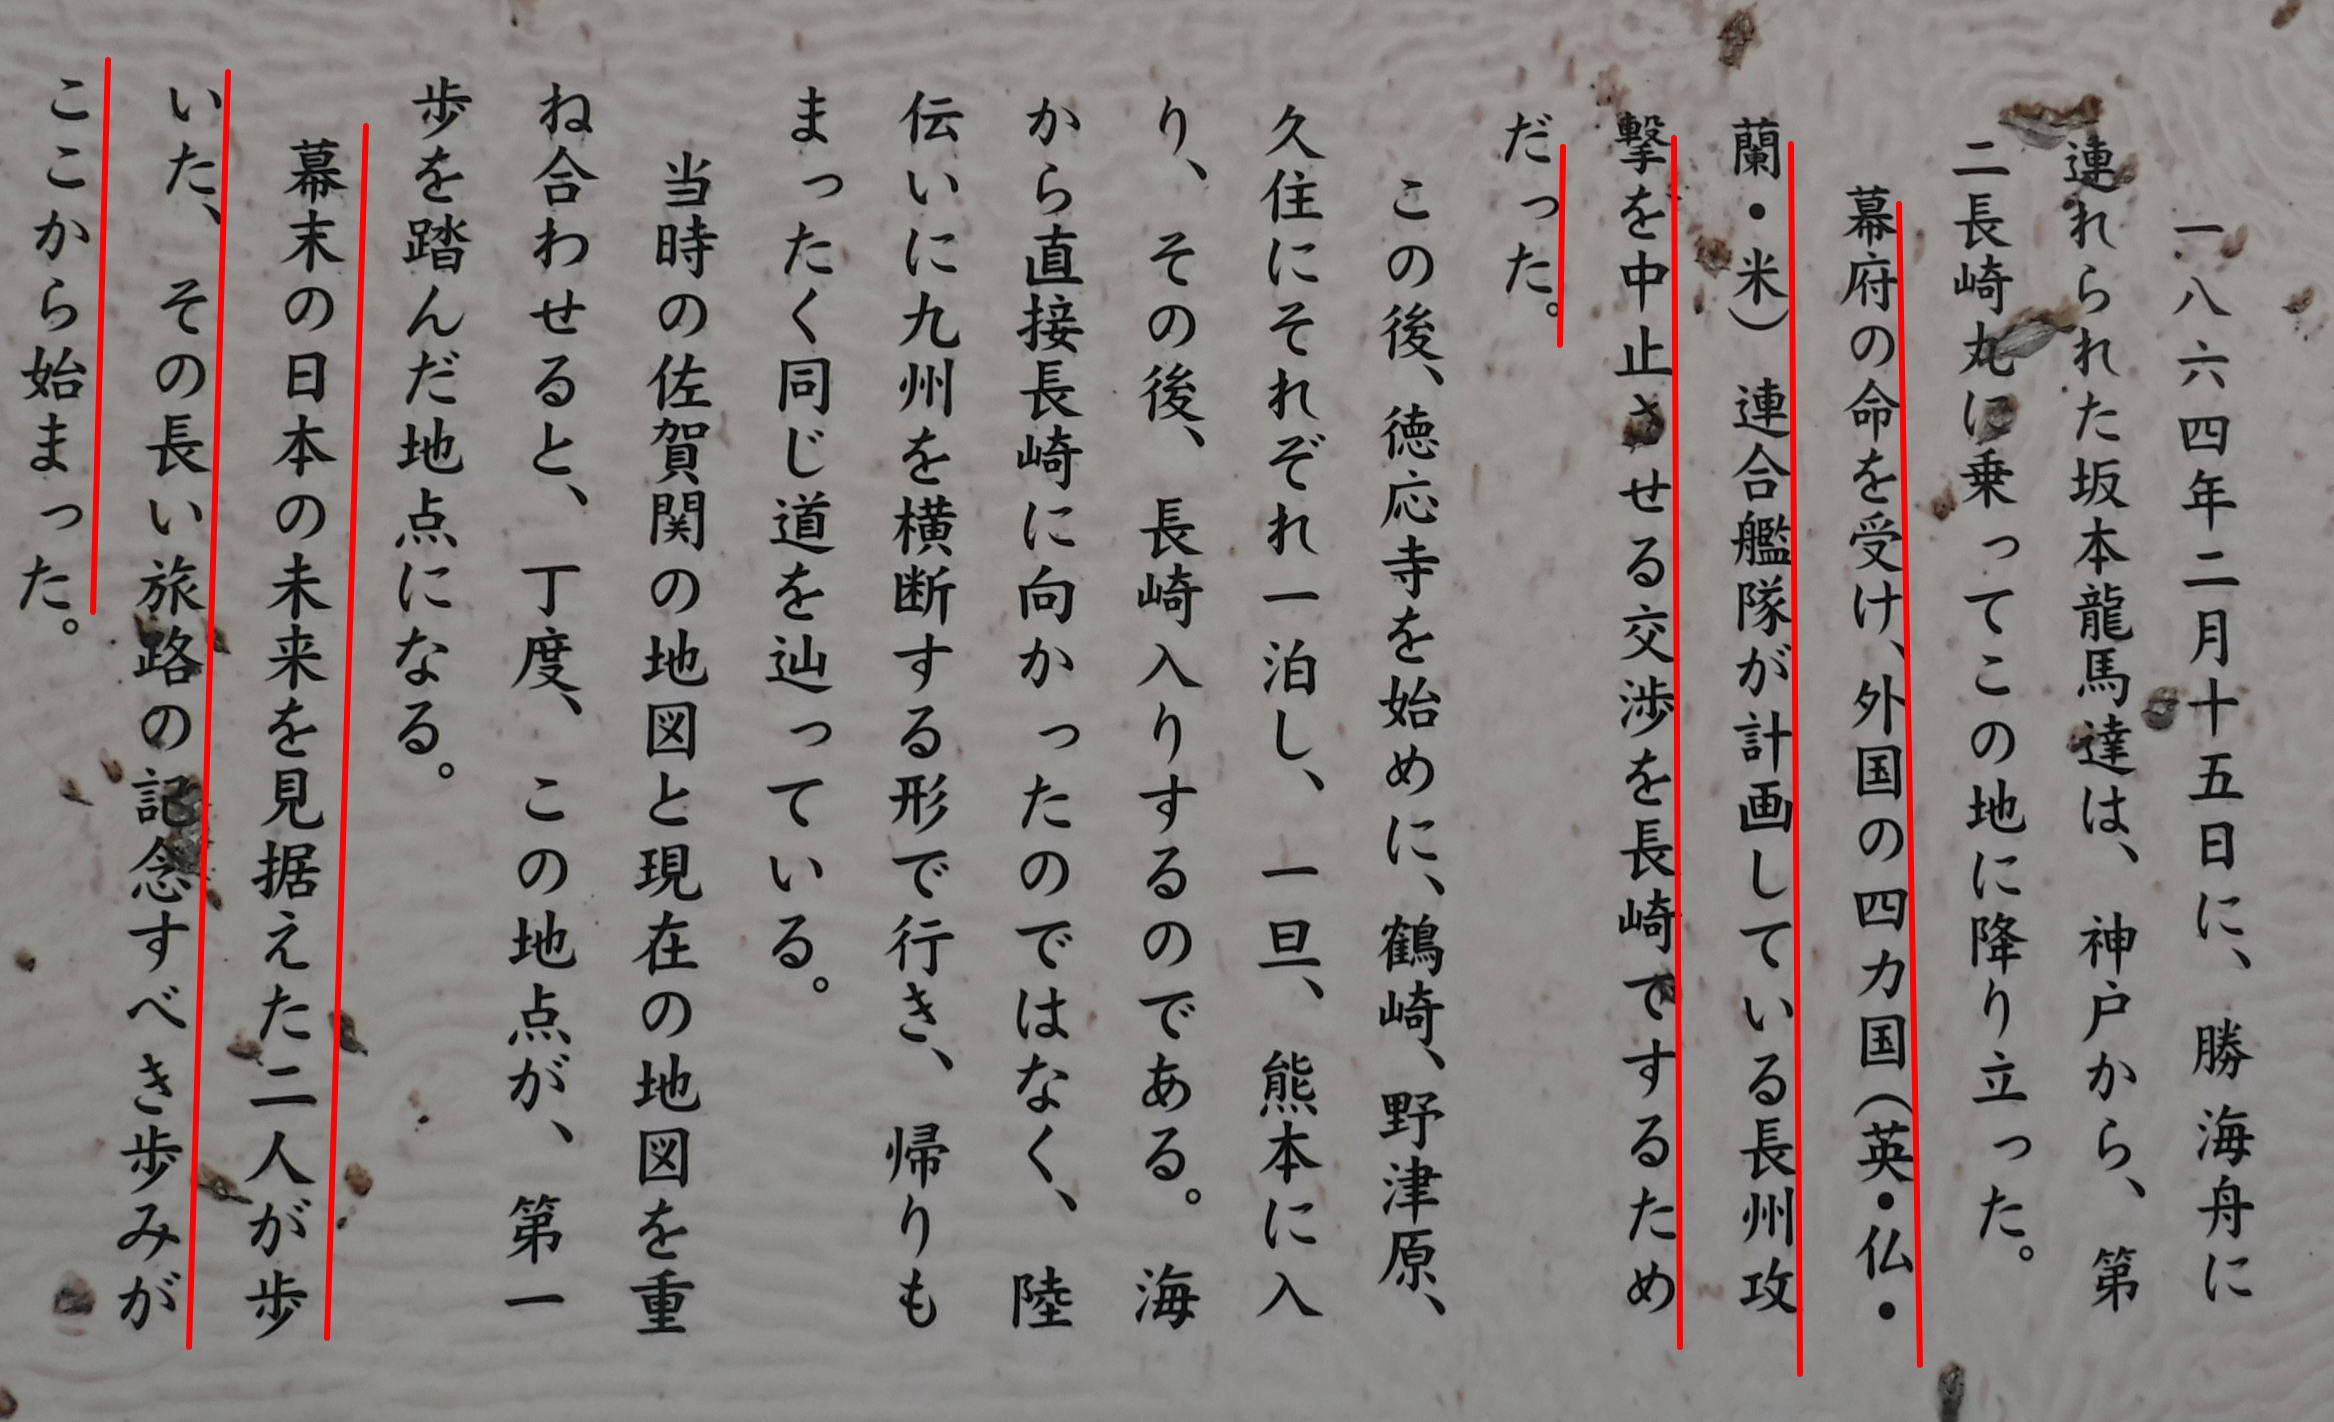 一八六四年二月十五日に、勝 海舟に
連れられた坂本龍馬達は、神戸から、第
二長崎丸に乗ってこの地に降り立った。
幕府の命を受け、外国の四カ国（英・仏・
蘭・米）連合艦隊が計画している長州攻
撃を中止させる交渉を長崎でするため
だった。
この後、徳応寺を始めに、鶴崎、野津原、
久住にそれぞれ一泊し、一旦、熊本に入
り、その後、長崎入りするのである。海
から直接長崎に向かったのではなく、陸
伝いに九州を横断する形で行き、帰りも
まったく同じ道を辿っている。
当時の佐賀関の地図と現在の地図を重
ね合わせると、丁度、この地点が、第一
歩を踏んだ地点になる。
幕末の日本の未来を見据えた二人が歩
いた、その長い旅路の記念すべき歩みが
ここから始まった。